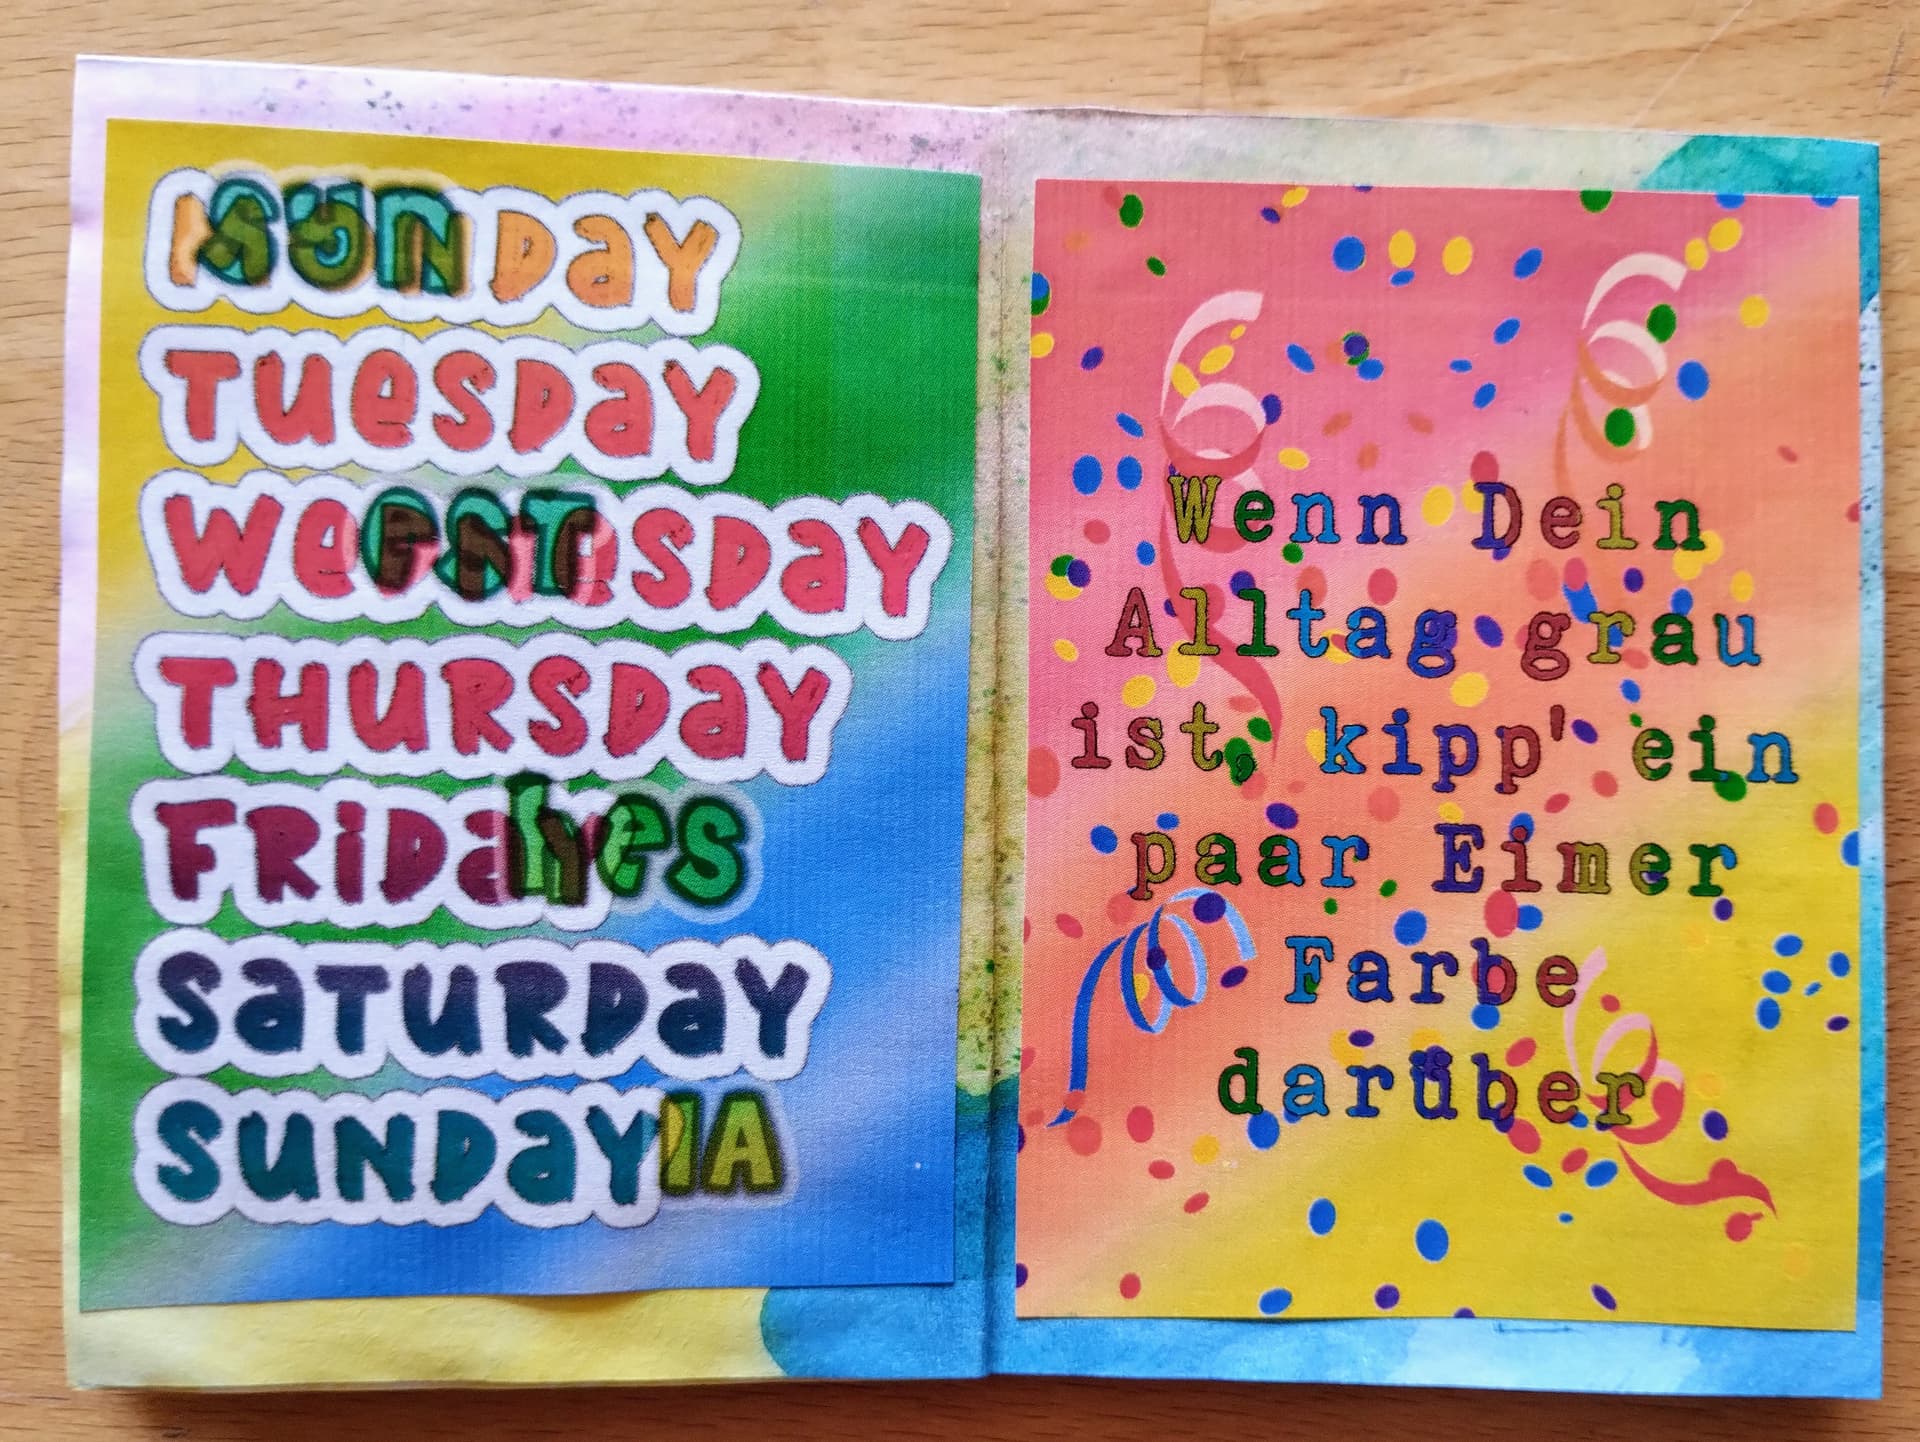 SUNDAY
TUESDAY
WEDNESDAY
THURSDAY
FRIDAY
SATURDAY
SUNDAY IA
Wenn Dein
Alltag grau
ist, kipp' ein
paar Eimer
Farbe
darüber